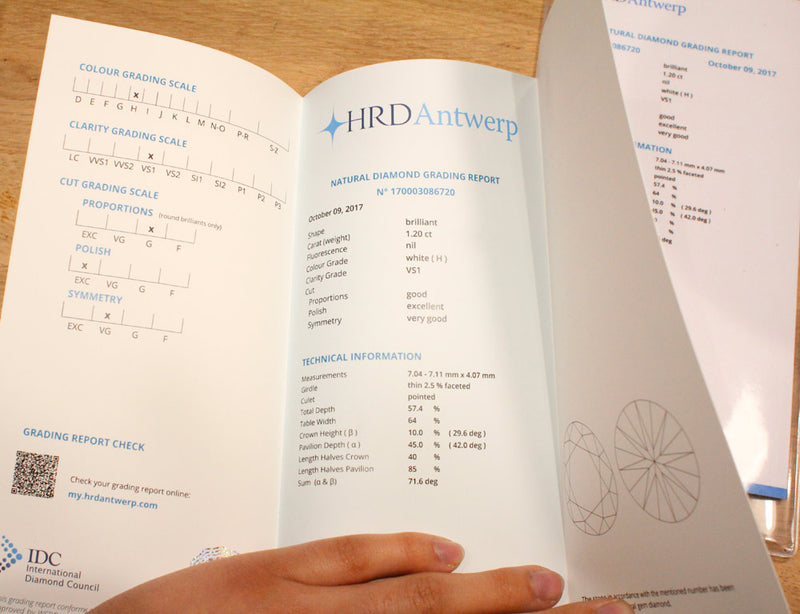 COLOUR GRADING SCALE
x
D E F G H I J K L M N-O P-R S-Z
CLARITY GRADING SCALE
x
LC VVS1 VVS2 VS1 VS2 SI1 SI2 P1 P2 P3
CUT GRADING SCALE
PROPORTIONS (round brilliants only)
x
EXC VG G F
POLISH
x
EXC VG G F
SYMMETRY
x
EXC VG G F
GRADING REPORT CHECK
Check your grading report online:
my.hrdantwerp.com
IDC
International
Diamond Council
this grading report conforms
HRD Antwerp
NATURAL DIAMOND GRADING REPORT
N° 170003086720
October 09, 2017
Shape brilliant
Carat (weight) 1.20 ct
Fluorescence nil
Colour Grade white ( H )
Clarity Grade VS1
Cut
Proportions good
Polish excellent
Symmetry very good
TECHNICAL INFORMATION
Measurements 7.04 - 7.11 mm x 4.07 mm
Girdle thin 2.5 % faceted
Culet pointed
Total Depth 57.4 %
Table Width 64 %
Crown Height ( β ) 10.0 % ( 29.6 deg )
Pavilion Depth ( α ) 45.0 % ( 42.0 deg )
Length Halves Crown 40 %
Length Halves Pavilion 85 %
Sum (α & β) 71.6 deg
The stone in accordance with the mentioned number has been
gem diamond.
RD Antwerp
TURAL DIAMOND GRADING REPORT
086720
October 09, 2017
brilliant
1.20 ct
nil
white ( H )
VS1
good
excellent
very good
MATION
7.04 - 7.11 mm x 4.07 mm
thin 2.5 % faceted
pointed
57.4 %
64 %
10.0 % ( 29.6 deg )
45.0 % ( 42.0 deg )
%
%
deg